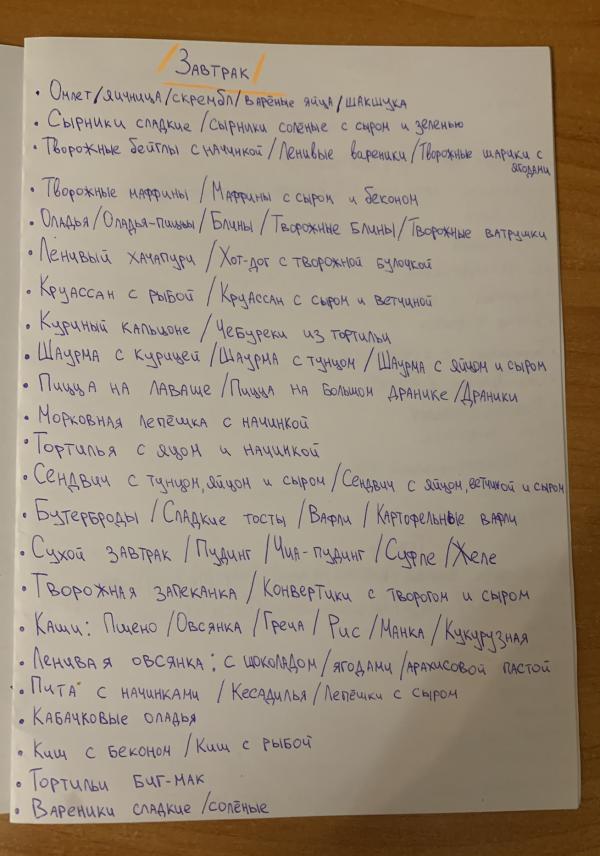 /Завтрак/
• Омлет/яичница/скрембл/варёные яйца/шакшука
• Сырники сладкие/сырники солёные с сыром и зеленью
• Творожные бейглы с начинкой/Ленивые вареники/Творожные шарики с
ягодами
• Творожные маффины/Маффины с сыром и беконом
• Оладья/Оладья-пиццы/Блины/Творожные блины/Творожные ватрушки
• Ленивый хачапури/Хот-дог с творожной булочкой
• Круассан с рыбой/Круассан с сыром и ветчиной
• Куриный кальцоне/Чебуреки из тортильи
• Шаурма с курицей/Шаурма с тунцом/Шаурма с яйцом и сыром
• Пицца на лаваше/Пицца на большом дранике/Драники
• Морковная лепёшка с начинкой
• Тортилья с яцом и начинкой
• Сендвич с тунцом, яйцом и сыром/Сендвич с яйцом, ветчиной и сыром
• Бутерброды/Сладкие тосты/Вафли/Картофельные вафли
• Сухой завтрак/Пудинг/Чиа-пудинг/Суфле/Желе
• Творожная запеканка/Конвертики с творогом и сыром
• Каши: Пшено/Овсянка/Греча/Рис/Манка/Кукурузная
• Ленивая овсянка: с шоколадом/ягодами/арахисовой пастой
• Пита с начинками/Кесадилья/Лепёшки с сыром
• Кабачковые оладья
• Киш с беконом/Киш с рыбой
• Тортильи биг-мак
• Вареники сладкие/солёные